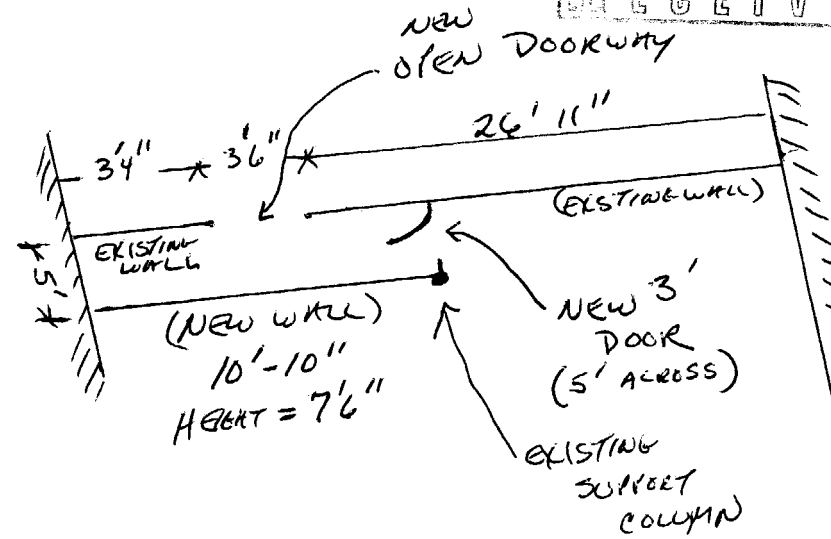 NEW
OPEN DOORWAY
3'4"
3'6"
26' 11"
EXISTING
WALL
(EXISTING WALL)
5'
(NEW WALL)
10'-10"
HEIGHT = 7'6"
NEW 3'
DOOR
(5' ACROSS)
EXISTING
SUPPORT
COLUMN